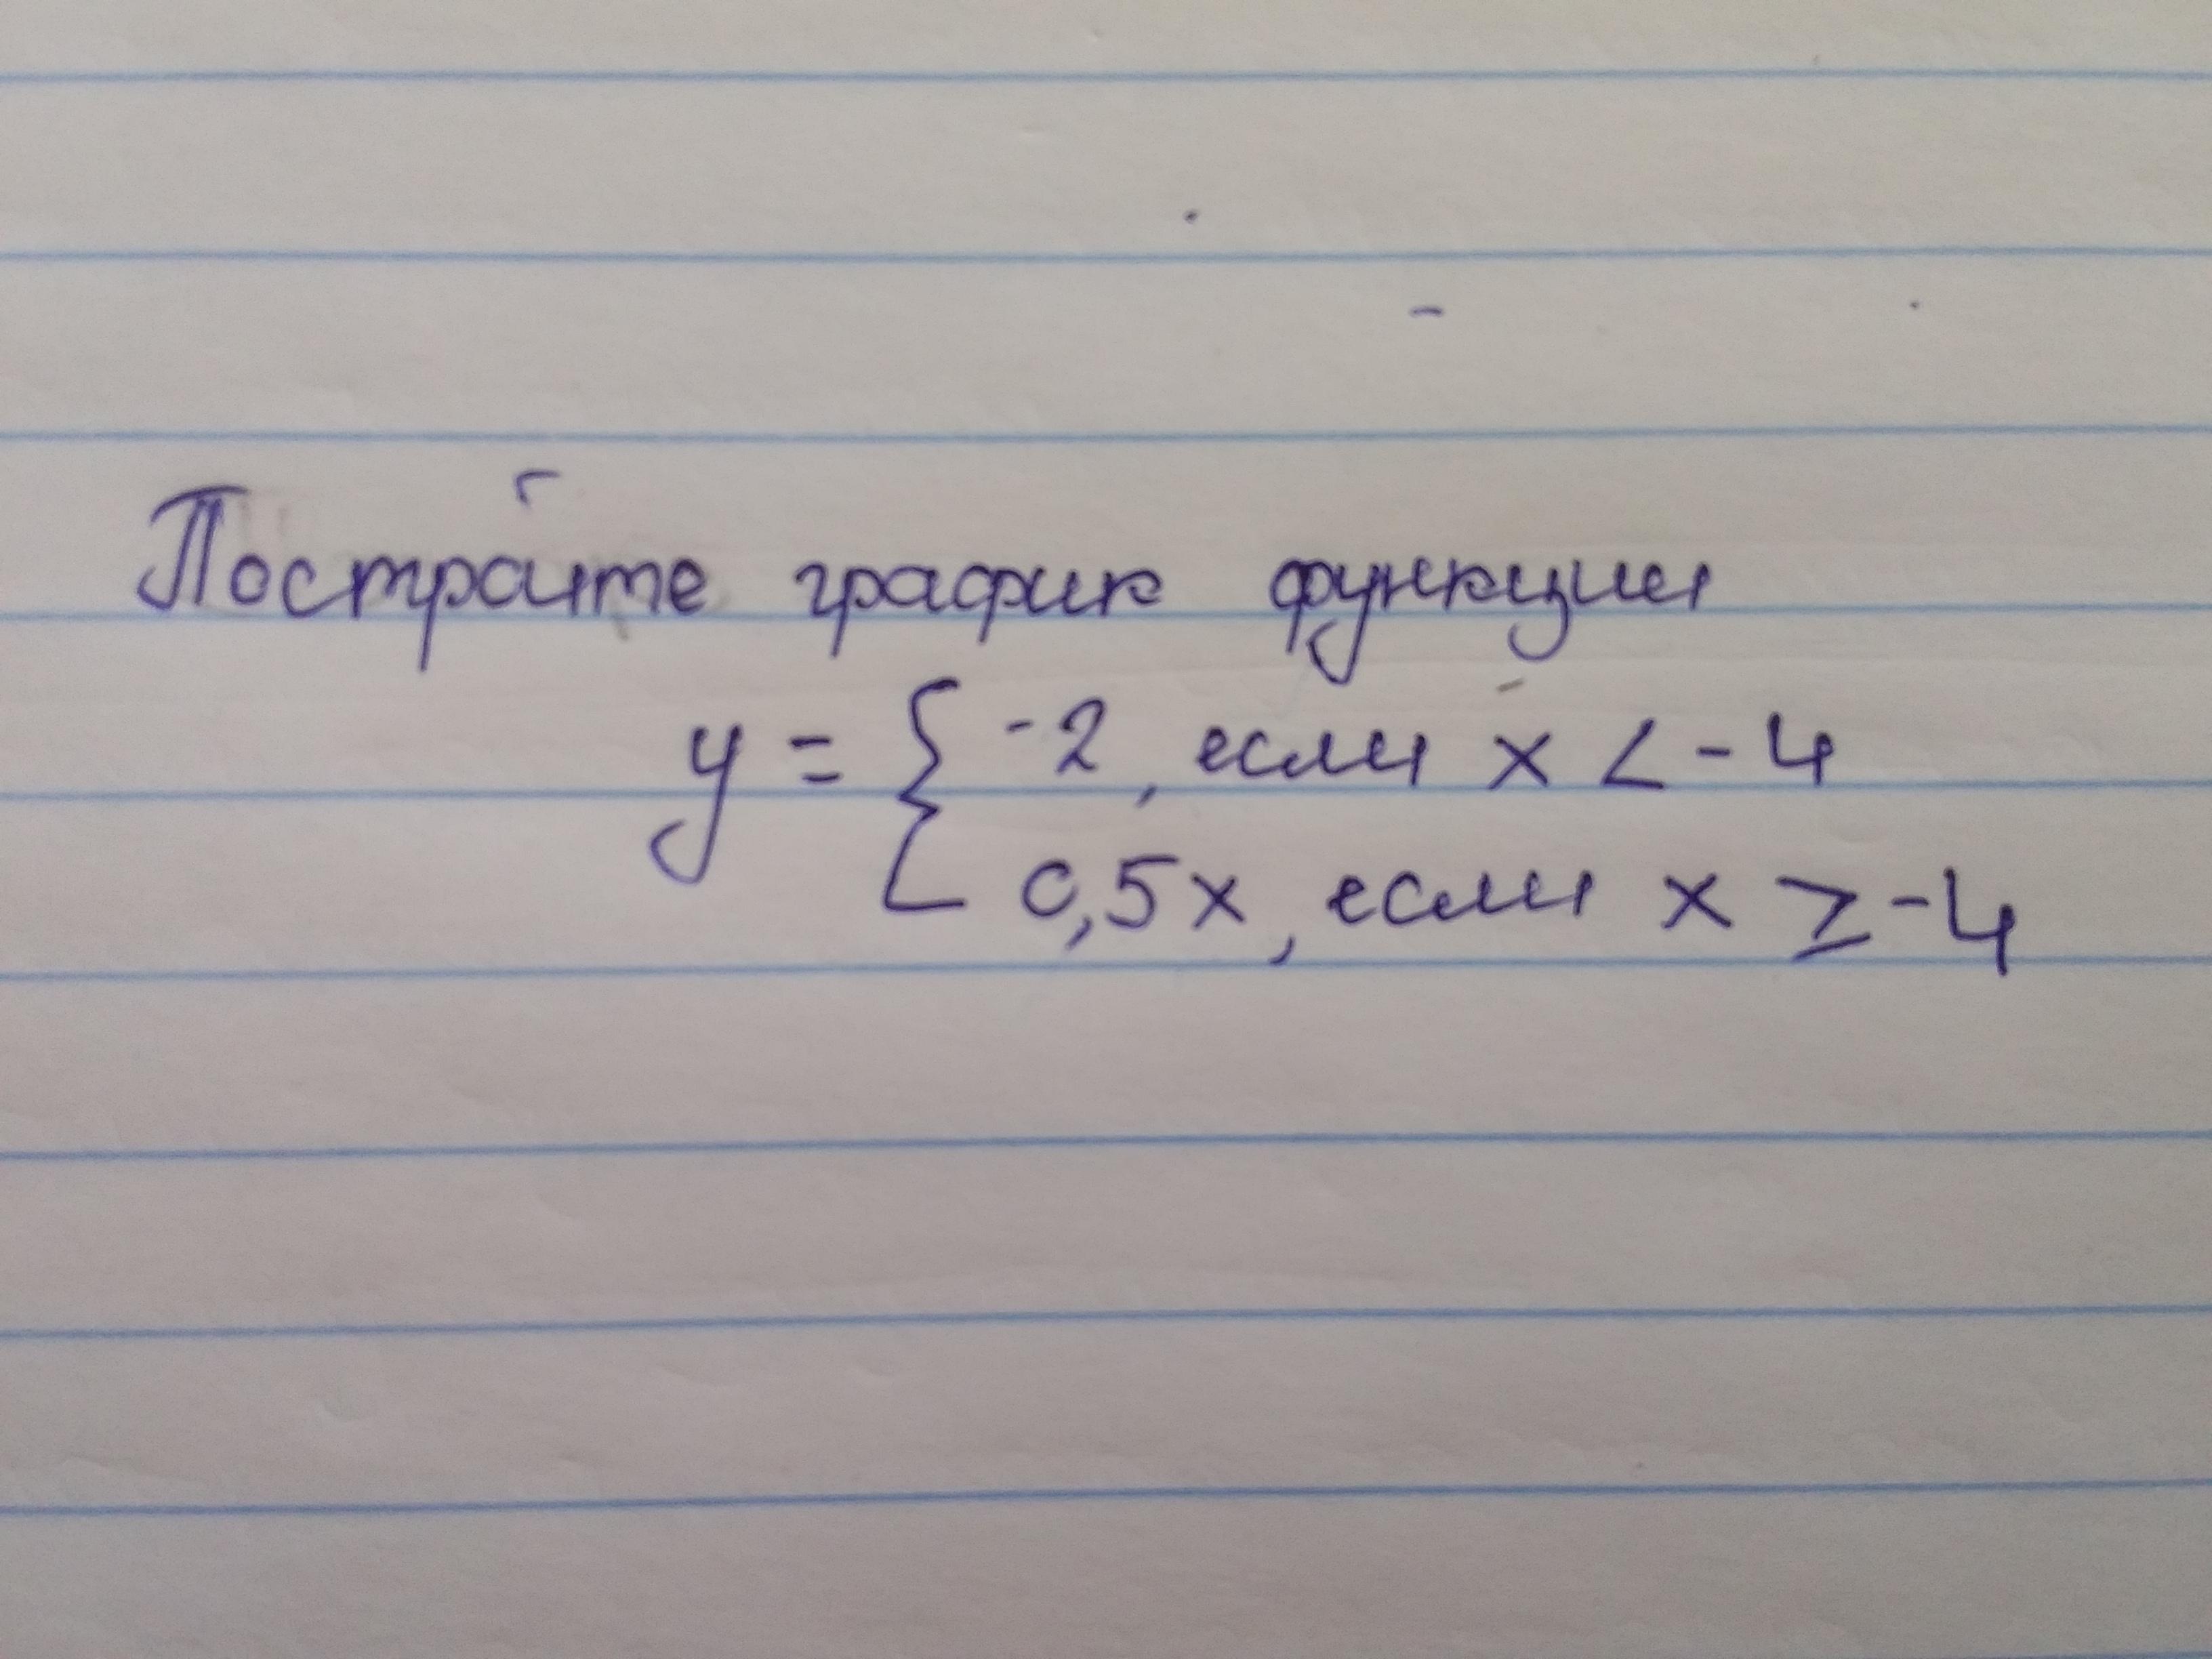 Постройте график функции
y = { -2, если x < -4
0,5x, если x ≥ -4